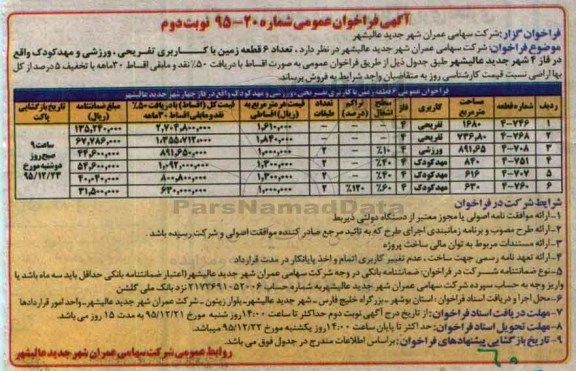 آگهی فراخوان عمومی شماره ۲۰-۹۵ نوبت دوم
فراخوان گزار: شرکت سهامی عمران شهر جدید عالیشهر
موضوع فراخوان: شرکت سهامی عمران شهر جدید عالیشهر در نظر دارد، تعداد ۶ قطعه زمین با کاربری تفریحی، ورزشی و مهدکودک واقع
در فاز ۴ شهر جدید عالیشهر طبق جدول ذیل از طریق فراخوان عمومی به صورت اقساط با دریافت ۵۰٪ نقد و مابقی اقساط ۳۰ماهه با تخفیف ۵ درصد از کل
بها اراضی نسبت قیمت کارشناسی روز به متقاضیان واجد شرایط به فروش برساند.
فراخوان عمومی ۶ قطعه زمین با کاربری تفریحی، ورزشی و مهدکودک واقع در فاز چهار شهر جدید عالیشهر
ردیف شماره قطعه مساحت مترمربع کاربری فاز سطح اشغال تراکم (درصد) تعداد طبقات قیمت هر مترمربع به (ریال) قیمت کل (اقساط) با دریافت ۵۰٪ نقد و مابقی اقساط ۳۰ ماهه مبلغ ضمانتنامه (ریال) تاریخ بازگشایی پاکت
۱ ۴-۷۴۶ ۱۶۸۰ تفریحی ۴ ۱,۶۱۰,۰۰۰ ۲,۷۰۴,۸۰۰,۰۰۰ ۱۳۵,۲۴۰,۰۰۰
۲ ۴-۷۶۸ ۷۳۶,۸۰ تفریحی ۴ ۱,۸۴۰,۰۰۰ ۱,۳۵۵,۷۱۲,۰۰۰ ۶۷,۷۸۶,۰۰۰
۳ ۴-۷۰۸ ۸۹۱,۶۵ ورزشی ۴ ۱۰٪ ۲ ۱,۰۰۰,۰۰۰ ۸۹۱,۶۵۰,۰۰۰ ۴۴,۶۰۰,۰۰۰
۴ ۴-۷۵۱ ۸۴۰ مهدکودک ۴ ۴۰٪ ۲ ۱,۳۰۰,۰۰۰ ۱,۰۹۲,۰۰۰,۰۰۰ ۵۴,۶۰۰,۰۰۰
۵ ۴-۷۰۷ ۶۱۶ مهدکودک ۴ ۴۰٪ ۲ ۱,۳۰۰,۰۰۰ ۸۰۰,۸۰۰,۰۰۰ ۴۰,۰۴۰,۰۰۰
۶ ۴-۷۶۰ ۶۳۰ مهدکودک ۴ ۶۰٪ ۱۲۰٪ ۲ ۱,۰۰۰,۰۰۰ ۶۳۰,۰۰۰,۰۰۰ ۳۱,۵۰۰,۰۰۰
ساعت ۹
صبح روز
دوشنبه مورخ
۹۵/۱۲/۲۳
شرایط شرکت در فراخوان
۱-ارائه موافقت نامه اصولی یا مجوز معتبر از دستگاه دولتی ذیربط
۲-ارائه طرح مصوب و برنامه زمانبندی اجرای طرح که به تائید مرجع صادر کننده موافقت اصولی و شرکت رسیده باشد
۳-ارائه مستندات مربوط به توان مالی ساخت پروژه
۴-ارائه تعهد نامه رسمی جهت ساخت، عدم تغییر کاربری اتمام و اخذ پایانکار در مدت قرارداد
۵-نوع ضمانتنامه شرکت در فراخوان: ضمانتنامه بانکی در وجه شرکت سهامی عمران شهر جدید عالیشهر(اعتبار ضمانتنامه بانکی حداقل باید سه ماه باشد یا
واریز وجه به حساب سپرده شرکت سهامی عمران شهر جدید عالیشهر به شماره حساب ۲۱۷۳۶۹۱۰۵۲۰۰۶ نزد بانک ملی گلشن
۶-محل اجرا و دریافت اسناد فراخوان: استان بوشهر - بزرگراه خلیج فارس - شهر جدید عالیشهر-بلوار زیتون - شرکت عمران شهر جدید عالیشهر-واحد امور قراردادها
۷-مهلت دریافت اسناد فراخوان: از تاریخ درج آگهی نوبت دوم حداکثر تا ساعت ۱۴:۰۰ روز شنبه مورخ ۹۵/۱۲/۲۱ به مدت ۱۵ روز می باشد.
۸-مهلت تحویل اسناد فراخوان: حداکثر تا پایان ساعت ۱۴:۰۰ روز یکشنبه مورخ ۹۵/۱۲/۲۲ میباشد.
۹-تاریخ بازگشایی پیشنهادهای فراخوان: براساس اطلاعات مندرج در جدول فوق می باشد.
روابط عمومی شرکت سهامی عمران شهر جدید عالیشهر
ParsNamadData